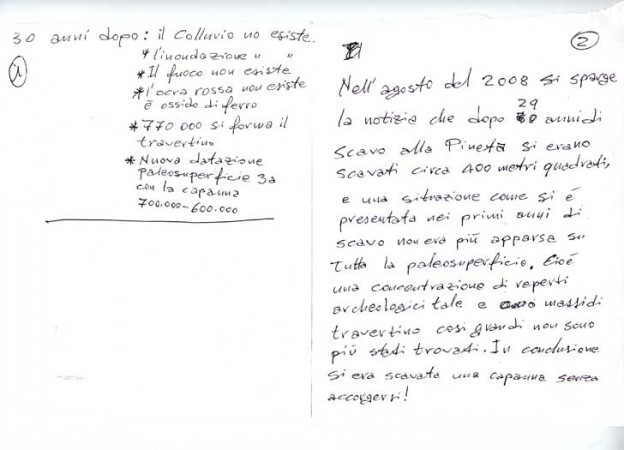 30 anni dopo: il Colluvio no esiste.
* l'inondazione " "
1
* Il fuoco non esiste
* l'ocra rossa non esiste
è ossido di ferro
* 770 000 si forma il
travertino
* Nuova datazione
paleosuperficie 3a
con la capanna
700.000-600.000
2
Nell'agosto del 2008 si sparge
la notizia che dopo 29 anni di
scavo alla Pineta si erano
scavati circa 400 metri quadrati,
e una situazione come si è
presentata nei primi anni di
scavo non era più apparsa su
tutta la paleosuperficie. Cioé
una concentrazione di reperti
archeologici tale e massi di
travertino così grandi non sono
più stati trovati. In conclusione
si era scavata una capanna senza
accorgersi!